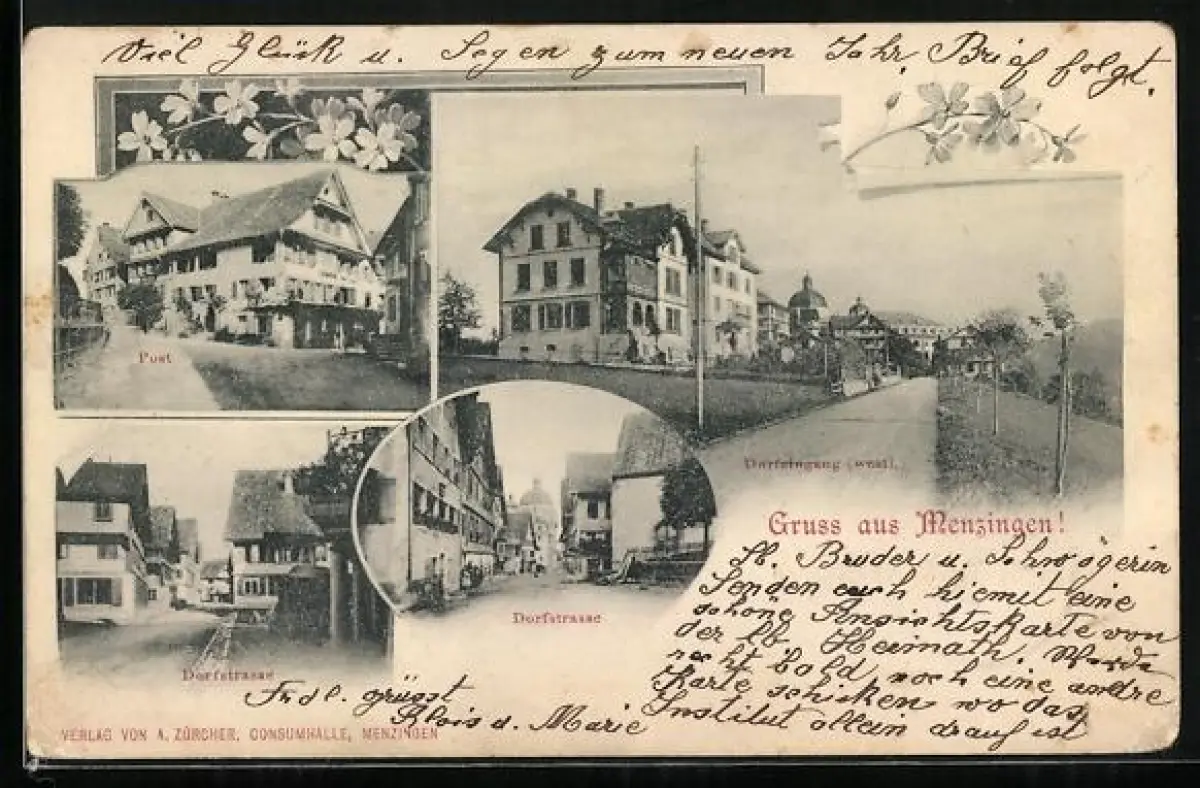 Viel Glück u. Segen zum neuen Jahr, Brief folgt.
Post
Dorfeingang (westl.)
Gruss aus Menzingen!
Dorfstrasse
Dorfstrasse
Bruder u. Schwögerin
Senden euch hiemit eine
schöne Ansichtskarte von
der lb. Heimath. Werde
recht bald noch eine andre
Karte schicken wo das
Institut allein drauf ist
Frdl. grüsst
Alois u. Marie
VERLAG VON A. ZÜRCHER, CONSUMHALLE, MENZINGEN